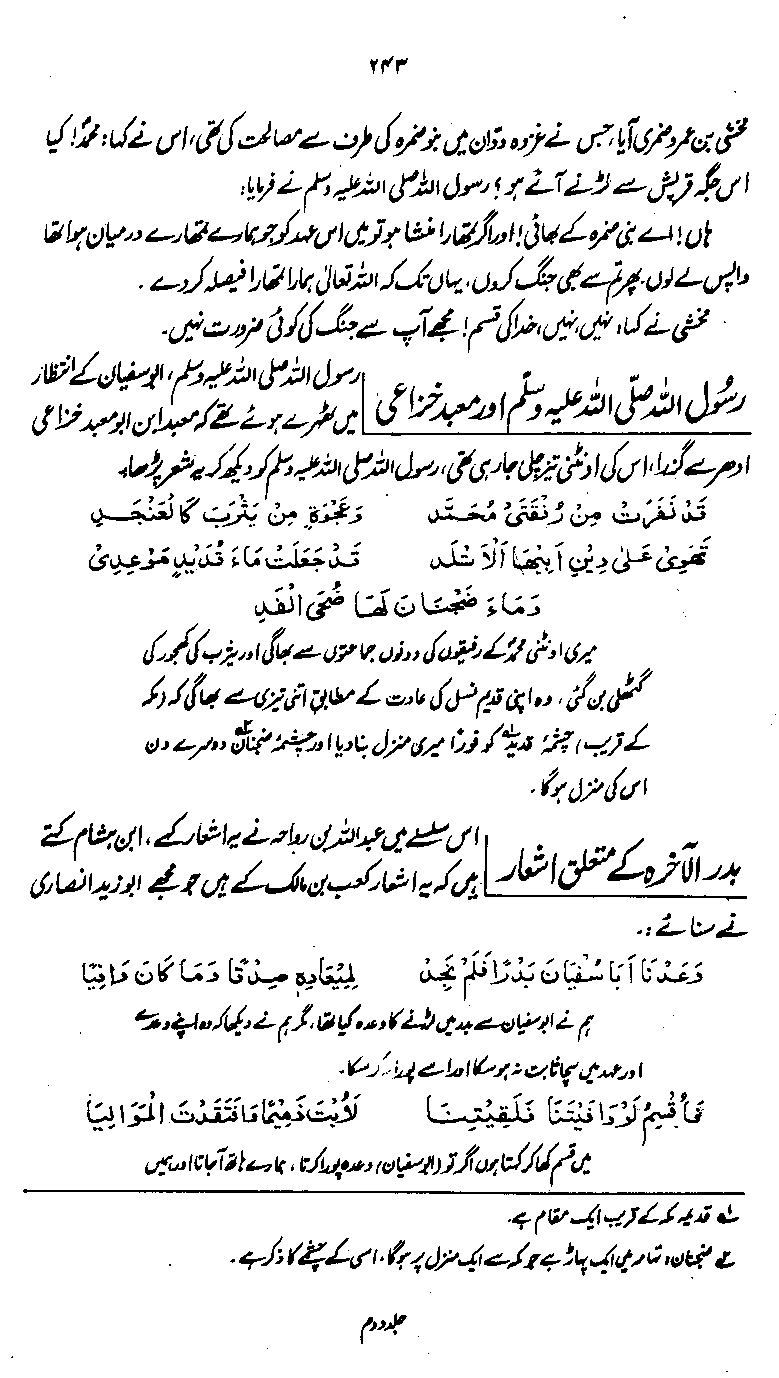 ۲۴۳
مخشی بن عمرو ضمری آیا، جس نے غزوہ ودّان میں بنو ضمرہ کی طرف سے مصالحت کی تھی، اس نے کہا: محمدؐ! کیا
اس جگہ قریش سے لڑنے آئے ہو؟ رسول اللہ صلی اللہ علیہ وسلم نے فرمایا:
ہاں! اے بنی ضمرہ کے بھائی! اور اگر تمھارا منشا ہو تو میں اس عہد کو جو ہمارے تمھارے درمیان ہوا تھا
واپس لے لوں، پھر تم سے بھی جنگ کروں، یہاں تک کہ اللہ تعالیٰ ہمارا تمھارا فیصلہ کر دے۔
مخشی نے کہا: نہیں، نہیں، خدا کی قسم! مجھے آپ سے جنگ کی کوئی ضرورت نہیں۔
رسُول اللہ صلّی اللہ علیہ وسلّم اور معبد خزاعی
رسول اللہ صلی اللہ علیہ وسلم، ابوسفیان کے انتظار
میں ٹھہرے ہوئے تھے کہ معبد ابن ابو معبد خزاعی
ادھر سے گذرا، اس کی اونٹنی تیز چلی جا رہی تھی، رسول اللہ صلی اللہ علیہ وسلم کو دیکھ کر یہ شعر پڑھا:
قَدْ نَفَرَتْ مِنْ رُفْقَتَیْ مُحَمَّد وَعَجْوَةٍ مِنْ یَثْرِبَ کَالْعَنْجَدِ
تَهْوِیْ عَلٰی دِیْنِ اَبِیْهَا الْاَتْلَدِ قَدْ جَعَلَتْ مَاءَ قُدَیْدٍ مَوْعِدِیْ
وَمَاءَ ضَجْنَانَ لَهَا ضُحَی الْغَدِ
میری اونٹنی محمدؐ کے رفیقوں کی دونوں جماعتوں سے بھاگی اور یثرب کی کھجور کی
گٹھلی بن گئی، وہ اپنی قدیم نسل کی عادت کے مطابق اتنی تیزی سے بھاگی کہ (مکہ
کے قریب) چشمۂ قدید۱ کو فوراً میری منزل بنا دیا اور چشمۂ ضجنان۲ دوسرے دن
اس کی منزل ہوگا۔
بدر الآخرہ کے متعلق اشعار
اس سلسلے میں عبداللہ بن رواحہ نے یہ اشعار کہے، ابن ہشام کہتے
ہیں کہ یہ اشعار کعب بن مالک کے ہیں جو مجھے ابو زید انصاری
نے سنائے:۔
وَعَدْنَا اَبَا سُفْیَانَ بَدْرًا فَلَمْ نَجِدْ لِمِیْعَادِهٖ صِدْقًا وَمَا کَانَ وَافِیًا
ہم نے ابوسفیان سے بدر میں لڑنے کا وعدہ کیا تھا، مگر ہم نے دیکھا کہ وہ اپنے وعدے
اور عہد میں سچا ثابت نہ ہو سکا اور اسے پورا نہ کر سکا۔
فَاُقْسِمُ لَوْ وَافَیْتَنَا فَلَقِیْتَنَا لَاُبْتَ ذَمِیْمًا وَافْتَقَدْتَ الْمَوَالِیَا
میں قسم کھا کر کہتا ہوں اگر تو (ابوسفیان) وعدہ پورا کرتا، ہمارے ہاتھ آ جاتا اور ہمیں
۱؎ قدید مکہ کے قریب ایک مقام ہے۔
۲؎ ضجنان: تہامہ میں ایک پہاڑ ہے جو مکہ سے ایک منزل پر ہوگا، اسی کے چشمے کا ذکر ہے۔
جلد دوم